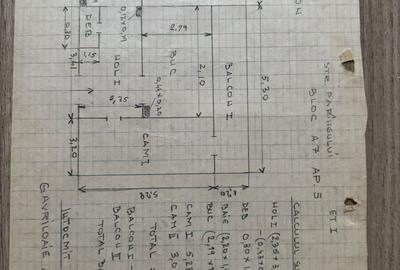 STR. PARÂNGULUI
BLOC A7 AP. 5
ET I
CALCULUL S
HOLI (2,35×3
(0,43×0
DEB 0,80×1
BAIE (2,20×1,
BUC (2,99×
CAM I 5,28
CAM II 3,0
TOTAL
BALCON I
BALCON II
TOTAL B
INTOCMIT
GAVRILOAIE
BALCON I
5,30
2,10
BUC
2,99
0,44×0,20
CAM I
HOL I
DEB
0,80
1,15
3,41
2,35
3,20
5,28